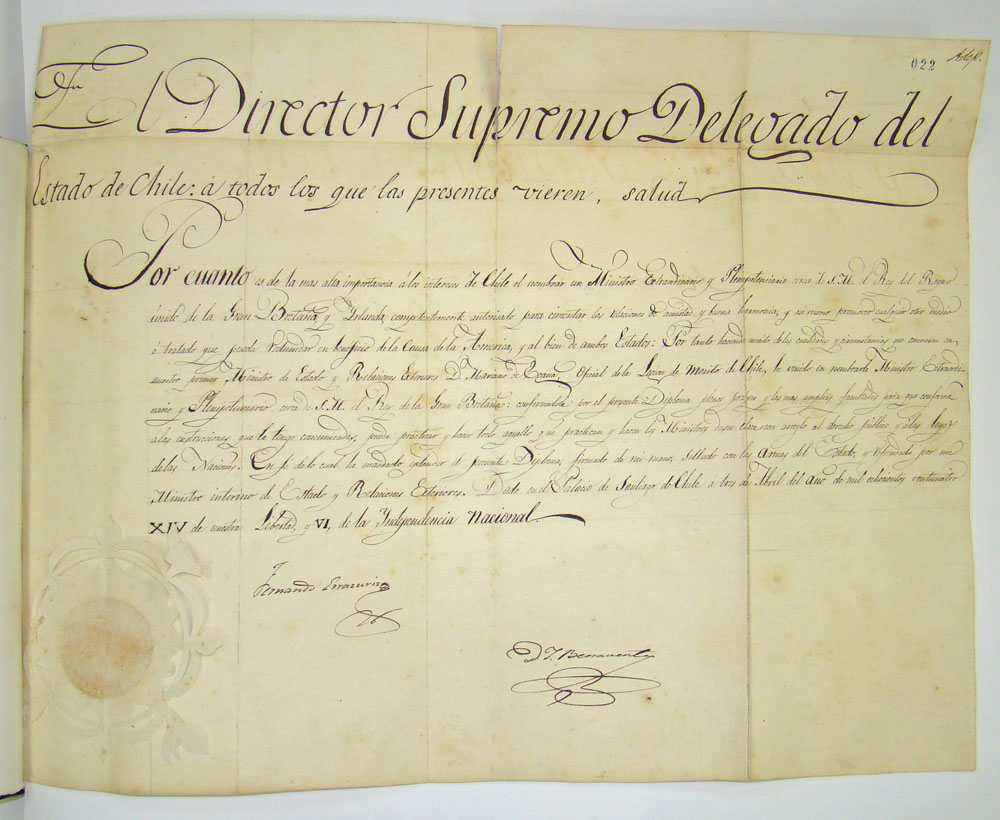 022
El Director Supremo Delegado del
Estado de Chile: á todos los que las presentes vieren, salud
Por cuanto es de la mas alta importancia á los intereses de Chile el nombrar un Ministro Extraordinario y Plenipotenciario cerca de S.M. el Rey del Reyno
unido de la Gran Bretaña, y Yrlanda, competentemente autorizado para cimentar las relaciones de amistad y buena harmonia, y asi mismo promover cualquier otro medio
ó tratado que pueda redundar en beneficio de la Causa de la America, y al bien de ambos Estados: Por tanto haciendo merito de las cualidades y circunstancias que concurren en
nuestro primer Ministro de Estado y Relaciones Exteriores D. Mariano de Egaña, Oficial de la Legion de Merito de Chile, he venido en nombrarle Ministro Extraordi-
nario y Plenipotenciario cerca de S.M. el Rey de la Gran Bretaña: confiriendole por el presente Diploma plenos poderes y las mas amplias facultades para que conforme
a las instrucciones que le tengo comunicadas, pueda practicar y hacer todo aquello que practican y hacen los Ministros de su clase con arreglo al derecho público y a las leyes
de las Naciones. En fé de lo cual he mandado extender el presente Diploma, firmado de mi mano, sellado con las Armas del Estado, y refrendado por mi
Ministro interino de Estado y Relaciones Exteriores. Dado en el Palacio de Santiago de Chile a tres de Abril del año de mil ochocientos veinticuatro
XIV de nuestra Libertad, y VI, de la Yndependencia Nacional.
Fernando Errazuriz
D. J. Benavente